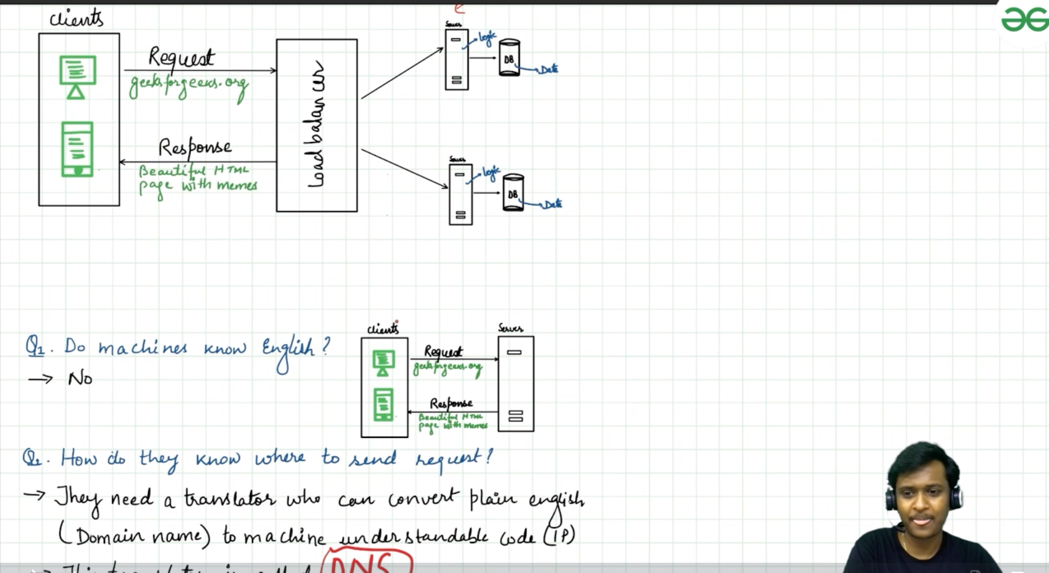 clients
Request
geeksforgeeks.org
Response
Beautiful HTML
page with memes
Load balancer
Server
Logic
DB
Data
Server
Logic
DB
Data
Q1. Do machines know English?
→ No
clients
Request
geeksforgeeks.org
Response
Beautiful HTML
page with memes
Server
Q2. How do they know where to send request?
→ They need a translator who can convert plain english
(Domain name) to machine understandable code (IP)
→ This translator is called DNS